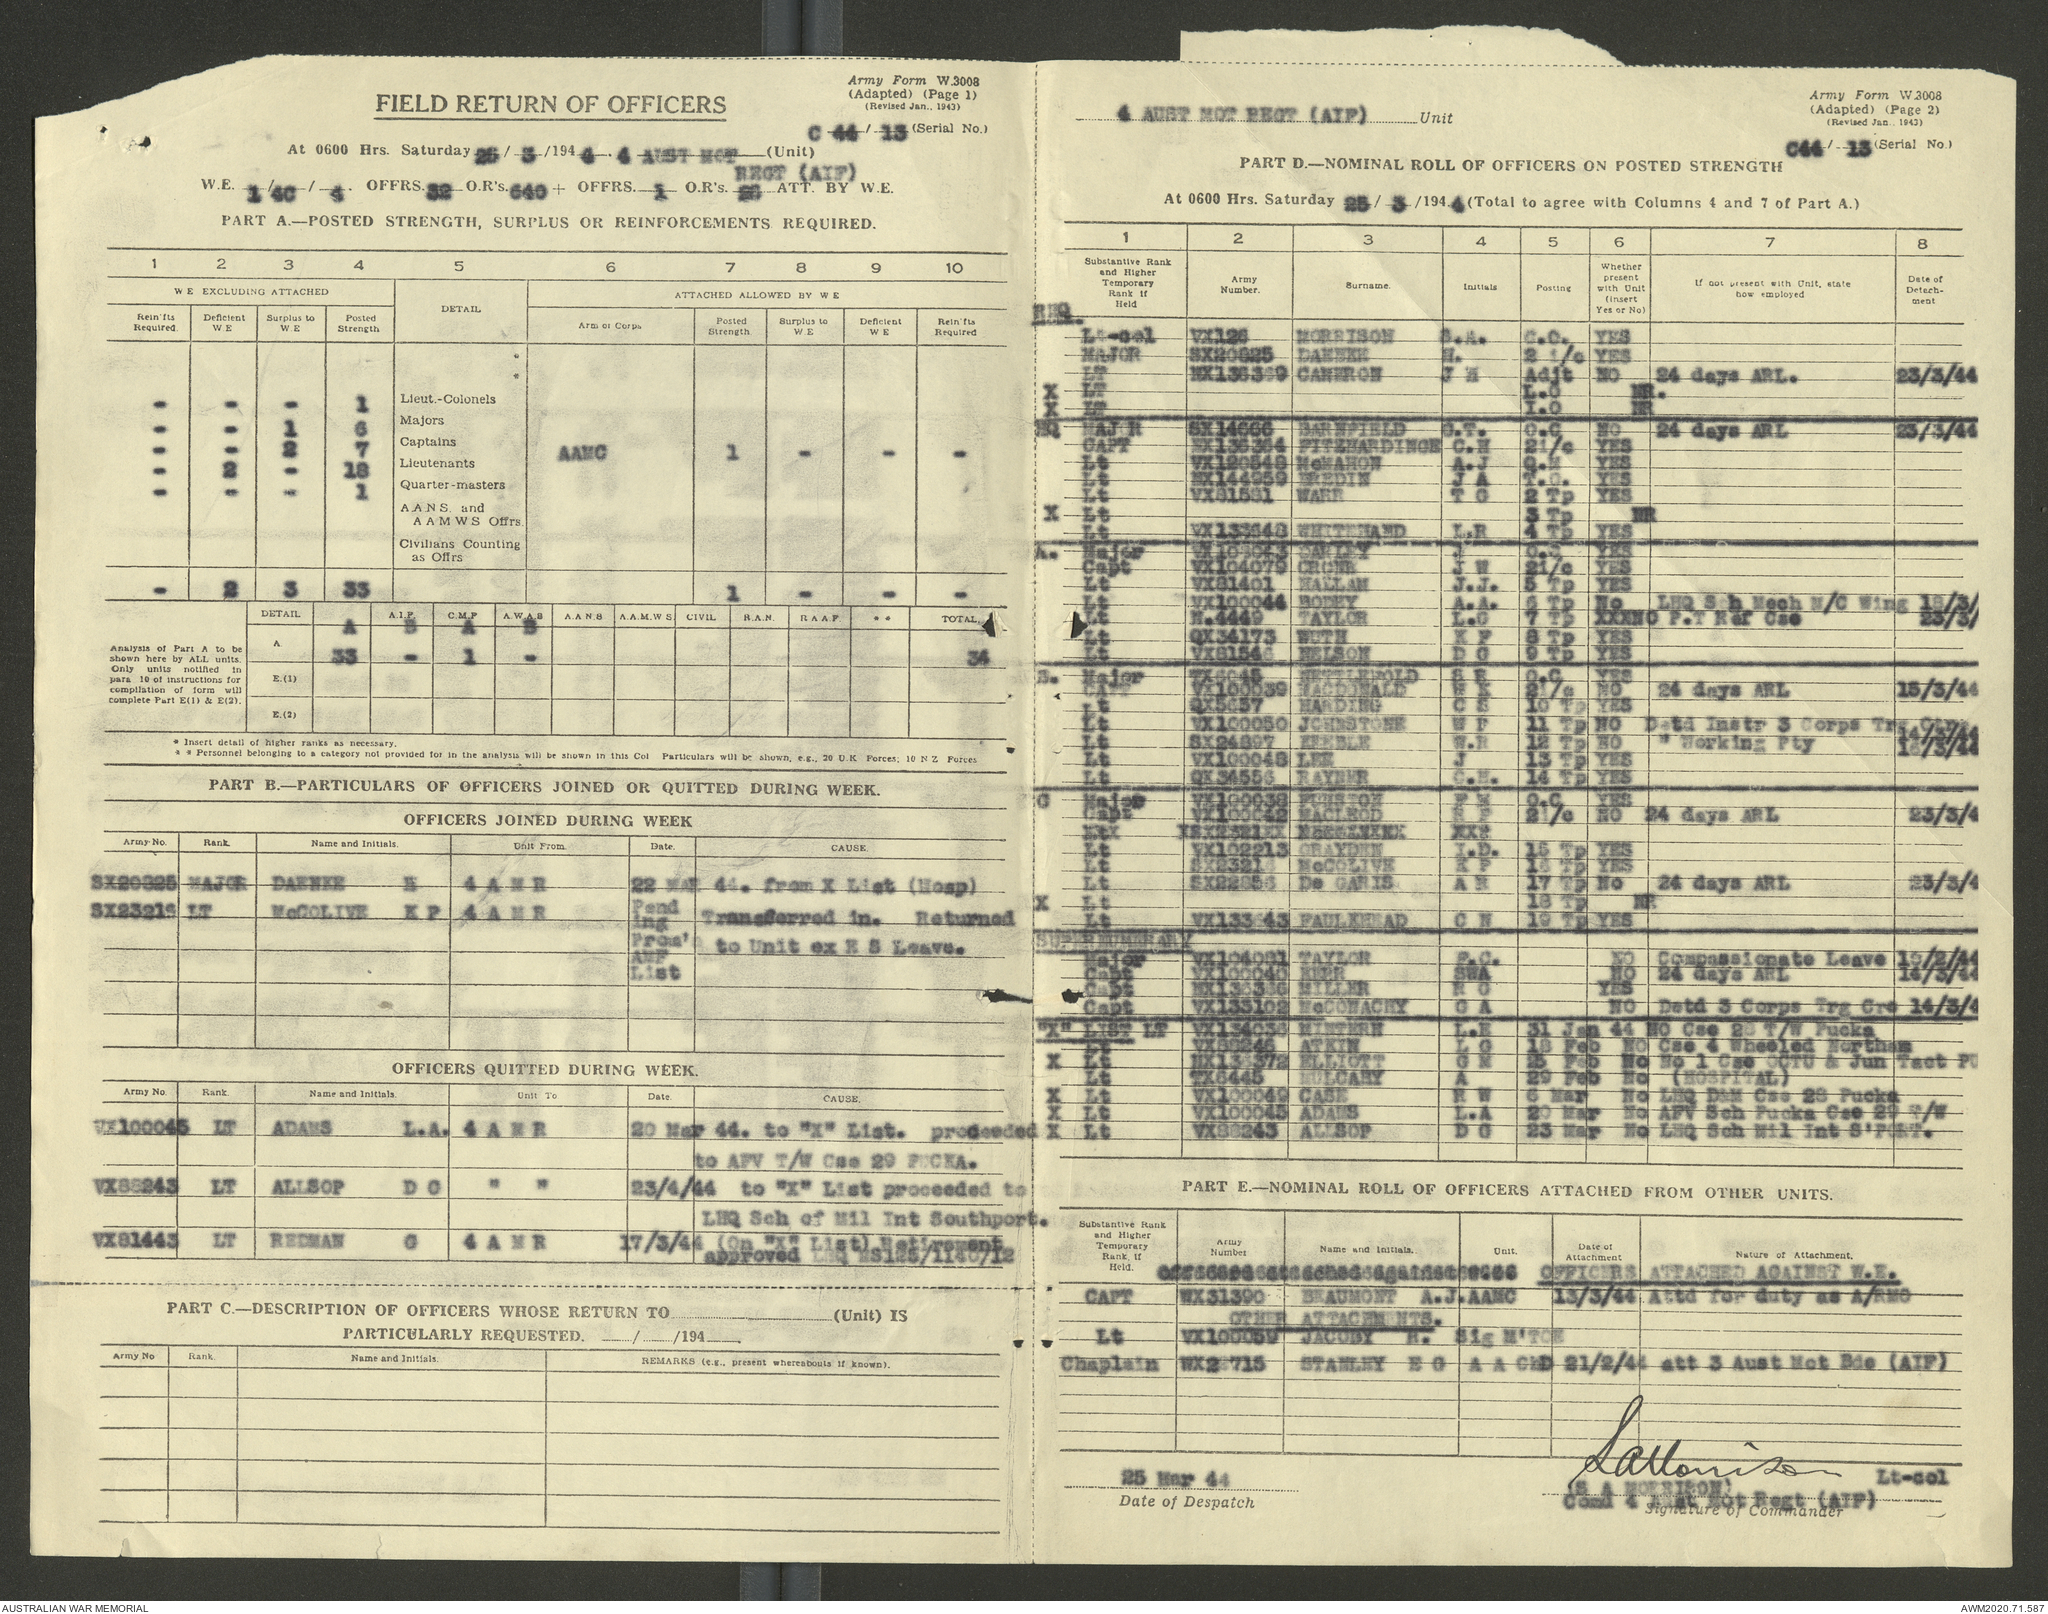 Army Form W.3008
(Adapted) (Page 1)
(Revised Jan., 1943)
FIELD RETURN OF OFFICERS
C 44/ 13 (Serial No.)
At 0600 Hrs. Saturday 25/ 3 /194 4. 4 AUST MOT (Unit)
REGT (AIF)
W.E. 1/4C / 4. OFFRS. 32 O.R's. 640 + OFFRS. 1 O.R's. 28 ATT. BY W.E.
PART A.—POSTED STRENGTH, SURPLUS OR REINFORCEMENTS REQUIRED.
1 2 3 4 5 6 7 8 9 10
W E EXCLUDING ATTACHED DETAIL ATTACHED ALLOWED BY W E
Rein'fts Required. Deficient W.E Surplus to W.E Posted Strength Arm or Corps Posted Strength. Surplus to W.E Deficient W.E Rein'fts Required
- - - 1 Lieut.-Colonels
- - 1 6 Majors
- - 2 7 Captains AAMC 1 - - -
- 2 - 18 Lieutenants
- - - 1 Quarter-masters
A.A.N.S. and
A A M W S Offrs.
Civilians Counting
as Offrs
- 2 3 33 1 - - -
DETAIL A.I.F. C.M.F A.W.A.S A.A.N.S A.A.M.W.S. CIVIL R.A.N. R A A F * * TOTAL
A B A B
Analysis of Part A to be shown here by ALL units. Only units notified in para 10 of instructions for compilation of form will complete Part E(1) & E(2).
A 33 - 1 - 34
E.(1)
E.(2)
* Insert detail of higher ranks as necessary.
* * Personnel belonging to a category not provided for in the analysis will be shown in this Col Particulars will be shown, e.g., 20 U.K Forces; 10 N Z Forces
PART B.—PARTICULARS OF OFFICERS JOINED OR QUITTED DURING WEEK.
OFFICERS JOINED DURING WEEK
Army No. Rank. Name and Initials. Unit From. Date. CAUSE.
SX20825 MAJOR DAENKE H 4 A M R 22 MAR 44. from X List (Hosp)
SX23216 LT McCOLIVE K P 4 A M R Pend Transferred in. Returned
ing
Prom' to Unit ex R S Leave.
AMF
List
OFFICERS QUITTED DURING WEEK.
Army No. Rank. Name and Initials. Unit To Date. CAUSE.
VX100045 LT ADAMS L.A. 4 A M R 20 Mar 44. to "X" List. proceeded
to AFV T/W Cse 29 PUCKA.
VX88243 LT ALLSOP D G " " 23/4/44 to "X" List proceeded to
LHQ Sch of Mil Int Southport.
VX81443 LT REDMAN G 4 A M R 17/3/44 (On "X" List) Retirement
approved LHQ
PART C.—DESCRIPTION OF OFFICERS WHOSE RETURN TO (Unit) IS
PARTICULARLY REQUESTED. / /194
Army No Rank. Name and Initials. REMARKS (e.g., present whereabouts if known).
Army Form W.3008
(Adapted) (Page 2)
(Revised Jan., 1943)
4 AUST MOT REGT (AIF) Unit
C44/ 13 (Serial No.)
PART D.—NOMINAL ROLL OF OFFICERS ON POSTED STRENGTH
At 0600 Hrs. Saturday 25/ 3 /194 4 (Total to agree with Columns 4 and 7 of Part A.)
1 2 3 4 5 6 7 8
Substantive Rank and Higher Temporary Rank if Held Army Number. Surname. Initials Posting Whether present with Unit (insert Yes or No) If not present with Unit, state how employed Date of Detachment
RHQ.
Lt-col VX126 MORRISON S.A. C.O. YES
MAJOR SX20825 DAENKE H. 2 i/c YES
LT NX136369 CAMERON J H Adjt NO 24 days ARL. 23/3/44
X LT L.O NR.
X LT I.O NR
HQ MAJOR SX14666 BARNFIELD G.T. O.C NO 24 days ARL 23/3/44
CAPT NX136364 FITZHARDINGE C.H 2i/c YES
Lt VX120548 McMAHON A.J Q.M YES
Lt NX144959 BREDIN J A T.O. YES
Lt VX81581 WARR T G 2 Tp YES
X Lt 3 Tp NR
Lt VX133648 WHITEHAND L.R 4 Tp YES
A. Major OARLEY J. O.C YES
Capt VX104079 CRONE J W 2i/c YES
Lt VX81401 HALLAM J.J. 5 Tp YES
Lt VX100044 BODEY A.A. 6 Tp No LHQ Sch Mech M/C Wing 18/3/
Lt N.4449 TAYLOR L.G 7 Tp XXXNO P.T Ref Cse 23/3/
Lt QX34173 WUTH K F 8 Tp YES
Lt VX81546 NELSON D G 9 Tp YES
B. Major TX6045 NETTLEFOLD S R O.C YES
CAPT VX100039 MACDONALD W K 2i/c NO 24 days ARL 15/3/44
Lt QX5657 HARDING C S 10 Tp YES
Lt VX100050 JOHNSTONE W F 11 Tp NO Detd Instr 3 Corps Trg Ctre 14/3/44
Lt SX24897 KEEBLE W.R 12 Tp NO " Working Pty 16/3/44
Lt VX100048 LEE J 13 Tp YES
Lt QX34556 RAYNER C.H. 14 Tp YES
C Major VX100038 O.C YES
Capt VX100042 MACLEOD 2i/c NO 24 days ARL 23/3/4
Lt VX102213 GRAYDEN I.D. 15 Tp YES
Lt SX23216 McCOLIVE K P 16 Tp YES
Lt SX22856 De GARIS A R 17 Tp No 24 days ARL 23/3/4
X Lt 18 Tp NR
Lt VX133643 FAULKHEAD C N 19 Tp YES
SUPERNUMERARY
Major VX104081 TAYLOR F.C. NO Compassionate Leave 19/2/44
Capt VX100040 KERR SWA NO 24 days ARL 14/3/44
Capt NX136386 MILLER R G YES
Capt VX133102 McCONACHY G A NO Detd 3 Corps Trg Cre 14/3/4
"X" LIST LT VX134036 MINTERN L.E 31 Jan 44 NO Cse 28 T/W Pucka
Lt VX88246 ATKIN L G 18 Feb NO Cse 4 Wheeled Northam
X Lt NX136372 ELLIOTT G M 25 Feb No No 1 Cse OCTU & Jun Tact PU
Lt TX5445 MULCAHY A 29 Feb No (HOSPITAL)
X Lt VX100049 CASE R W 6 Mar No LHQ D&M Cse 28 Pucka
X Lt VX100045 ADAMS L.A 20 Mar No AFV Sch Pucka Cse 29 T/W
X Lt VX88243 ALLSOP D G 23 Mar No LHQ Sch Mil Int S'PORT.
PART E.—NOMINAL ROLL OF OFFICERS ATTACHED FROM OTHER UNITS.
Substantive Rank and Higher Temporary Rank, if Held. Army Number Name and Initials. Unit. Date of Attachment Nature of Attachment.
OFFICERS ATTACHED AGAINST W.E.
CAPT WX31390 BEAUMONT A.J. AAMC 13/3/44 Attd for duty as A/RMO
OTHER ATTACHMENTS.
Lt VX100059 JACOBY H. Sig M'TOE
Chaplain STANLEY E G A A ChD 21/2/44 att 3 Aust Mot Bde (AIF)
25 Mar 44
Date of Despatch
SAMorrison Lt-col
(S A MORRISON)
Comd 4 Aust Mot Regt (AIF)
Signature of Commander
AUSTRALIAN WAR MEMORIAL
AWM2020.71.587